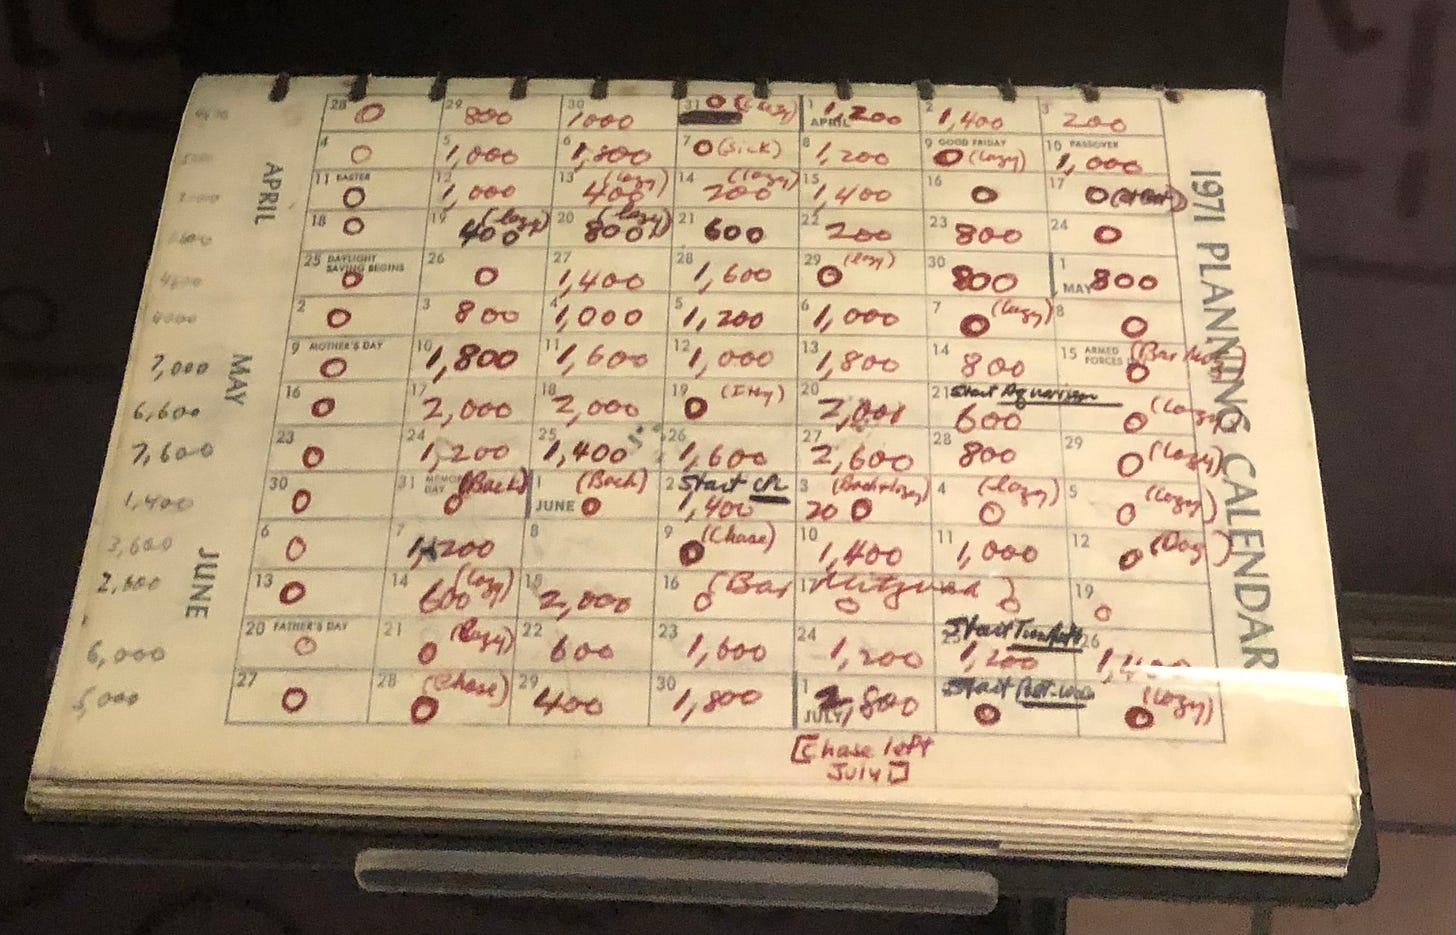 1971 PLANNING CALENDAR
APRIL
MAY
JUNE
28 0 29 800 30 1000 31 0 (Lazy) 1 APRIL 1,200 2 1,400 3 200
4 0 5 1,000 6 1,800 7 0 (Sick) 8 1,200 9 GOOD FRIDAY 0 (lazy) 10 PASSOVER 1,000
11 EASTER 0 12 1,000 13 (lazy) 400 14 (lazy) 200 15 1,400 16 0 17 0
18 0 19 (lazy) 400 20 (lazy) 800 21 600 22 200 23 800 24 0
25 DAYLIGHT SAVING BEGINS 0 26 0 27 1,400 28 1,600 29 0 (lazy) 30 800 1 MAY 800
4000 2 0 3 800 4 1,000 5 1,200 6 1,000 7 0 (lazy) 8 0
7,000 9 MOTHER'S DAY 0 10 1,800 11 1,600 12 1,000 13 1,800 14 800 15 ARMED FORCES (Bar 0
6,600 16 0 17 2,000 18 2,000 19 0 20 2,000 21 Start Aquarius 600 0 (lazy)
7,600 23 0 24 1,200 25 1,400 26 1,600 27 2,600 28 800 29 0 (lazy)
1,400 30 0 31 MEMORIAL DAY (Bach) 0 1 JUNE (Bach) 0 2 Start 1,400 3 20 0 4 (lazy) 0 5 (lazy) 0
3,600 6 0 7 1,200 8 9 (Chase) 0 10 1,400 11 1,000 12 0 (Dog)
2,600 13 0 14 (lazy) 600 15 2,000 16 (Bar 0 17 Mitzvah 0 0 19 0
6,000 20 FATHER'S DAY 0 21 0 (lazy) 22 600 23 1,600 24 1,200 25 Start 1,200 26 1,400
5,000 27 0 28 (Chase) 0 29 400 30 1,800 1 JULY 1,800 Start 0 0 (lazy)
[Chase left
July 1]